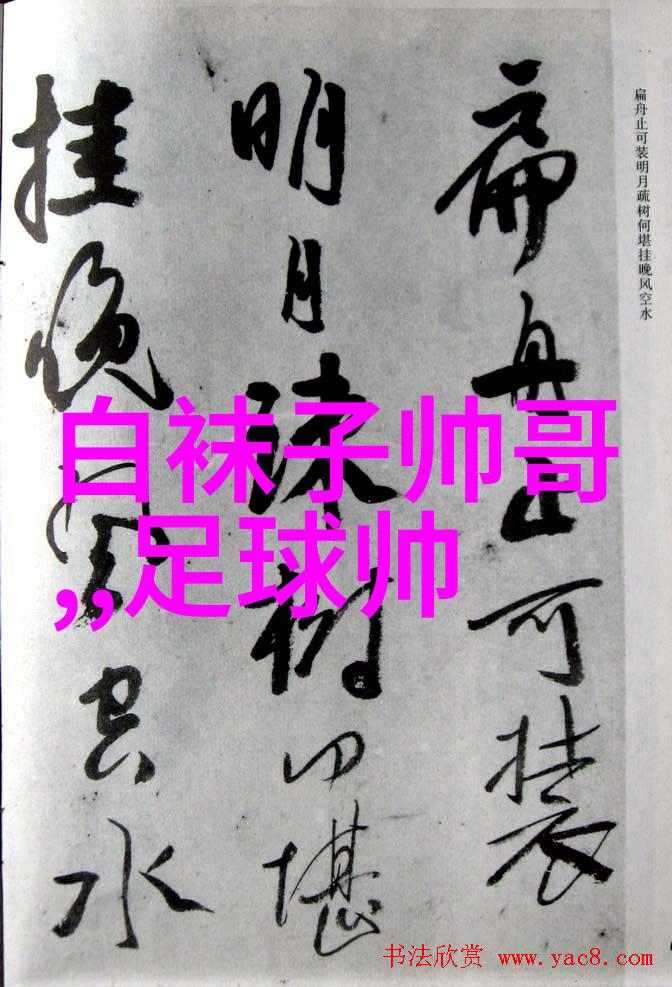 扁舟止可装
明月疏树何堪
挂晚风空水
扁舟止可装明月疏树何堪挂晚风空水
白袜子帅哥
,,足球帅
书法欣赏 www.yac8.com